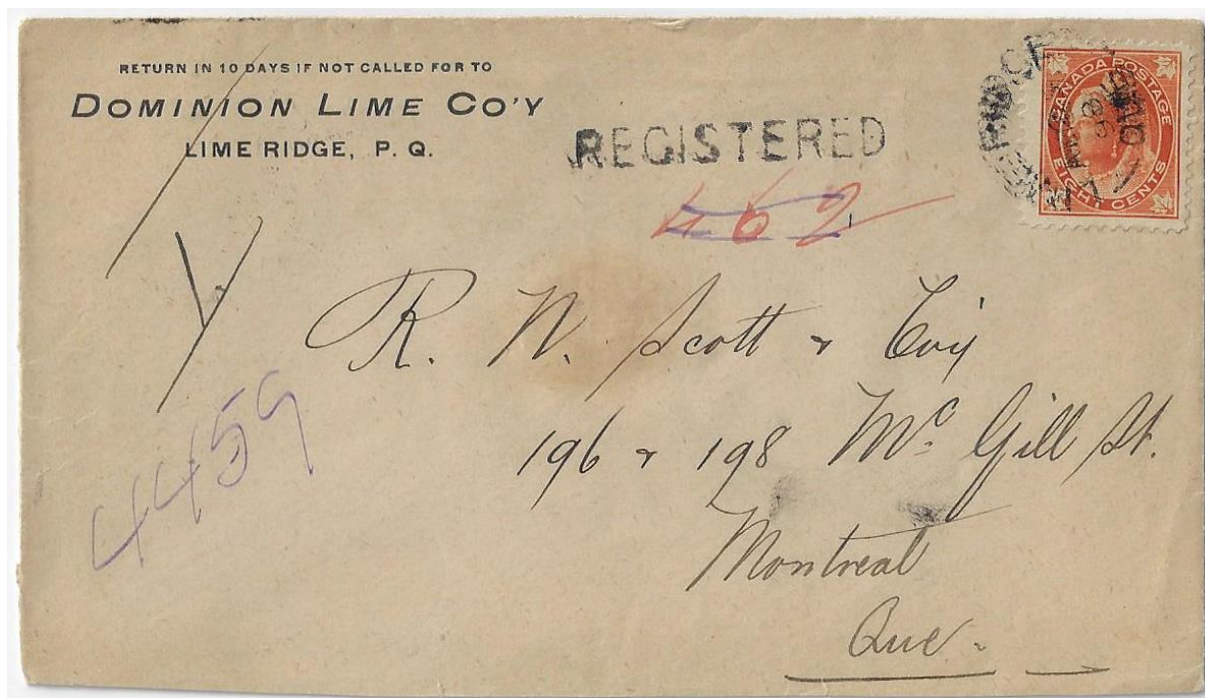 RETURN IN 10 DAYS IF NOT CALLED FOR TO
DOMINION LIME CO'Y
LIME RIDGE, P. Q.
REGISTERED
462
CANADA POSTAGE
EIGHT CENTS
R. W. Scott & Coy
196 & 198 Mc Gill St.
Montreal
Que.
4459